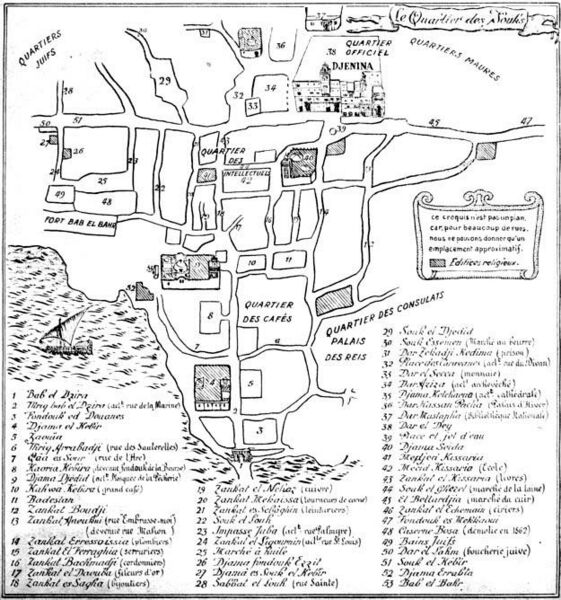 Le Quartier des Souks
QUARTIERS JUIFS
QUARTIER OFFICIEL
DJENINA
QUARTIERS MAURES
QUARTIER DES INTELLECTUEL
FORT BAB EL BAHR
QUARTIER DES CAFÉS
QUARTIER DES CONSULATS
PALAIS DES REIS
ce croquis n'est pas un plan,
car, pour beaucoup de rues,
nous ne pouvons donner qu'un
emplacement approximatif.
Edifices religieux.
1 Bab el Dzira
2 Thriq bab el Dzira (act.t rue de la Marine)
3 Fondouk ed Douanes
4 Djama el Kebir
5 Zaouïa
6 Thriq Yrrabadji (rue des Sauterelles)
7 Qâä es Sour (rue de l'Arc)
8 Kaoria Kebira (devant fondouk de la Bourse)
9 Djama Djedid (act.t Mosquée de la Pêcherie)
10 Kahwa Kebira (grand café)
11 Badestan
12 Zankat Bouadji
13 Zankat (rue Embrasse-moi)
(devenue rue Mahon)
14 Zankat Erressaïssia (plombiers)
15 Zankat el Ferraghia (serruriers)
16 Zankat Bachmadji (cordonniers)
17 Zankat el Daouba (fileurs d'or)
18 Zankat es Sagha (bijoutiers)
19 Zankat el Nehas (cuivre)
20 Zankat Mekaissa (tourneurs de corne)
21 Zankat es Sebaghin (teinturiers)
22 Souk el Souk
23 Impasse Juba
24 Zankat el (act.t rue St Louis)
25 Marché à huile
26 Djama fondouk Ezzit
27 Djama es Souk el Kebir
28 Sabbat el Souk (rue Sainte)
29 Souk el Djedid
30 Souk Essemen (Marché au beurre)
31 Dar Kedima (prison)
32 Place des Caravanes (act.t rue du Divan)
33 Dar el Secca (monnaie)
34 Dar Aziza (act.t archevêché)
35 Djama Ketchaoua (act.t cathédrale)
36 Dar Hassan Pacha (Palais d'Hiver)
37 Dar Mustapha (Bibliothèque Nationale)
38 Dar el Dey
39 Place et jet d'eau
40 Djama Seïda
41 Kissaria
42 Mecid Kissaria (Ecole)
43 Zankat el Kissaria (livres)
44 Souk el Ghezel (marché de la laine)
45 El Bellardjia (marché du cuir)
46 Zankat el (ciriers)
47 Fondouk es
48 Caserne Bosa (démolie en 1862)
49 Bains Juifs
50 Dar el Lahm (boucherie juive)
51 Souk el Kebir
52 Djama Errabta
53 Bab el Bahr